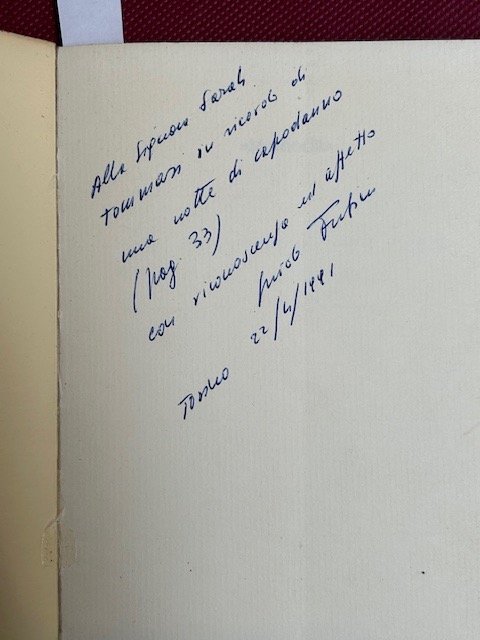 Alla Signora Sarah
Tommasi in ricordo di
una notte di capodanno
(pag. 33)
con riconoscenza ed affetto
Guido
Torino 22/4/1991